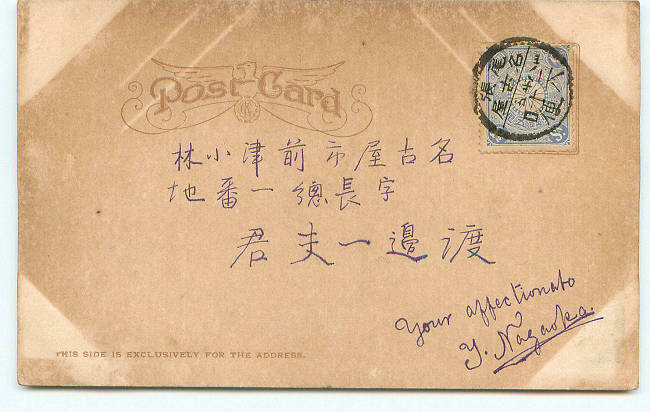 Post Card
名古屋市前津小林
字長總一番地
渡邊一夫君
Your affectionate
Y. Nagaoka.
THIS SIDE IS EXCLUSIVELY FOR THE ADDRESS.